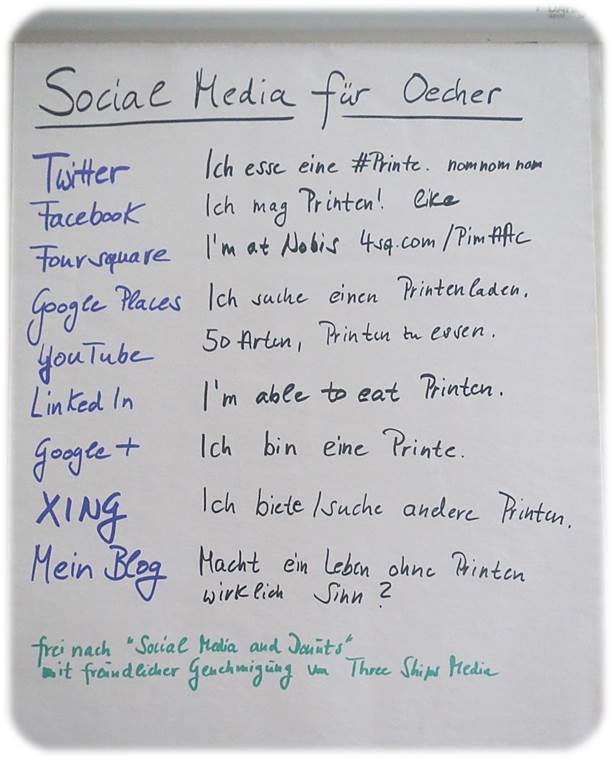 Social Media für Oecher
Twitter Ich esse eine #Printe. nomnomnom
Facebook Ich mag Printen! like
Foursquare I'm at Nobis 4sq.com/PimAAc
Google Places Ich suche einen Printenladen.
YouTube 50 Arten, Printen zu essen.
Linked In I'm able to eat Printen.
Google+ Ich bin eine Printe.
XING Ich biete/suche andere Printen.
Mein Blog Macht ein Leben ohne Printen
wirklich Sinn?
frei nach "Social Media and Donuts"
mit freundlicher Genehmigung von Three Ships Media